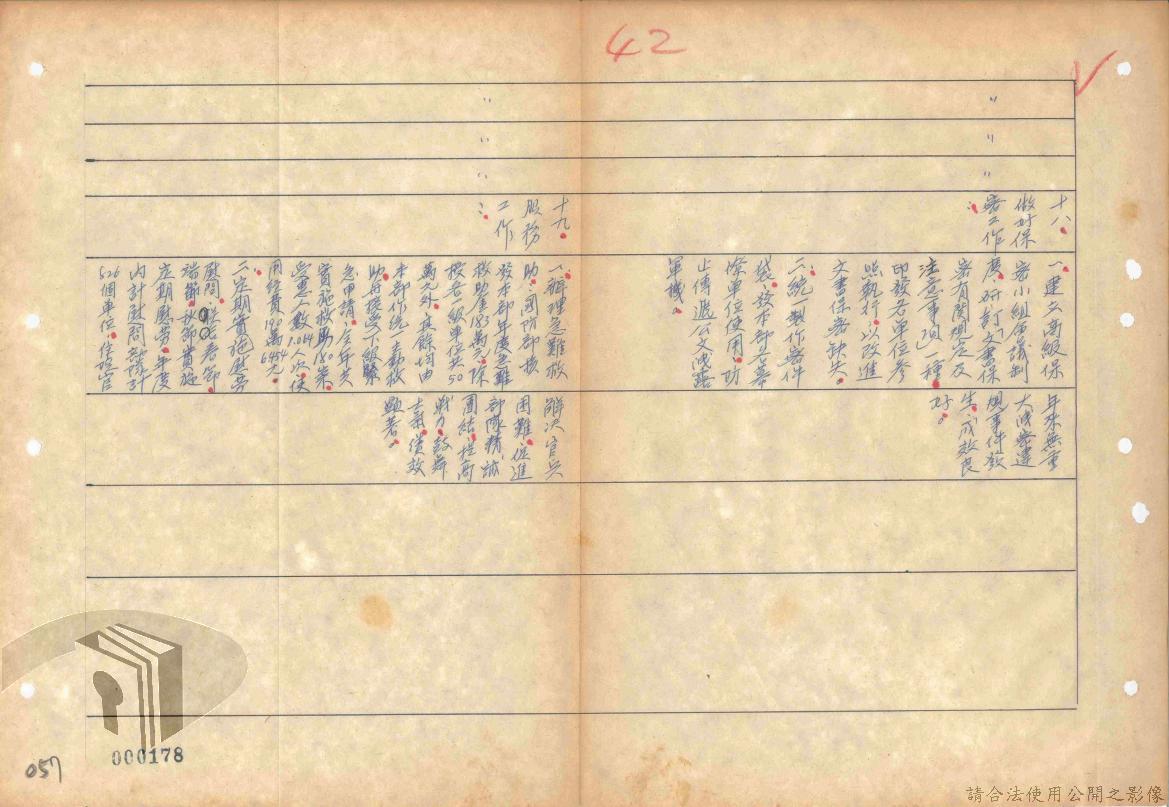 42
〃
〃
〃
十八、
做好保
密工作
：
一、建立高級保
密小組會議制
度，研訂「文書保
密有關規定及
注意事項」一種，
印發各單位參
照執行，以改進
文書保密缺失。
二、統一製作密件
袋，發本部各幕
僚單位使用，防
止傳遞公文洩露
軍機。
年來無重
大洩密違
規事件發
生，成效良
好。
〃
〃
〃
十九、
服務
工作
：
一、辦理急難救
助：國防部核
發本部年度急難
救助金183萬元，除
授各一級單位共50
萬元外，其餘均由
本部作統一支助救
助，並接受下級緊
急申請，全年共
實施救助180案，
受惠人數1,064人次，使
用經費180萬6454元。
二、定期實施慰勞
慰問：
春節
端節、秋節實施
定期慰勞，年度
內計慰問部隊計
526個單位，住院官
解決官兵
困難，促進
部隊精誠
團結，提高
戰力，鼓舞
士氣，績效
顯著。
000178
057
請合法使用公開之影像